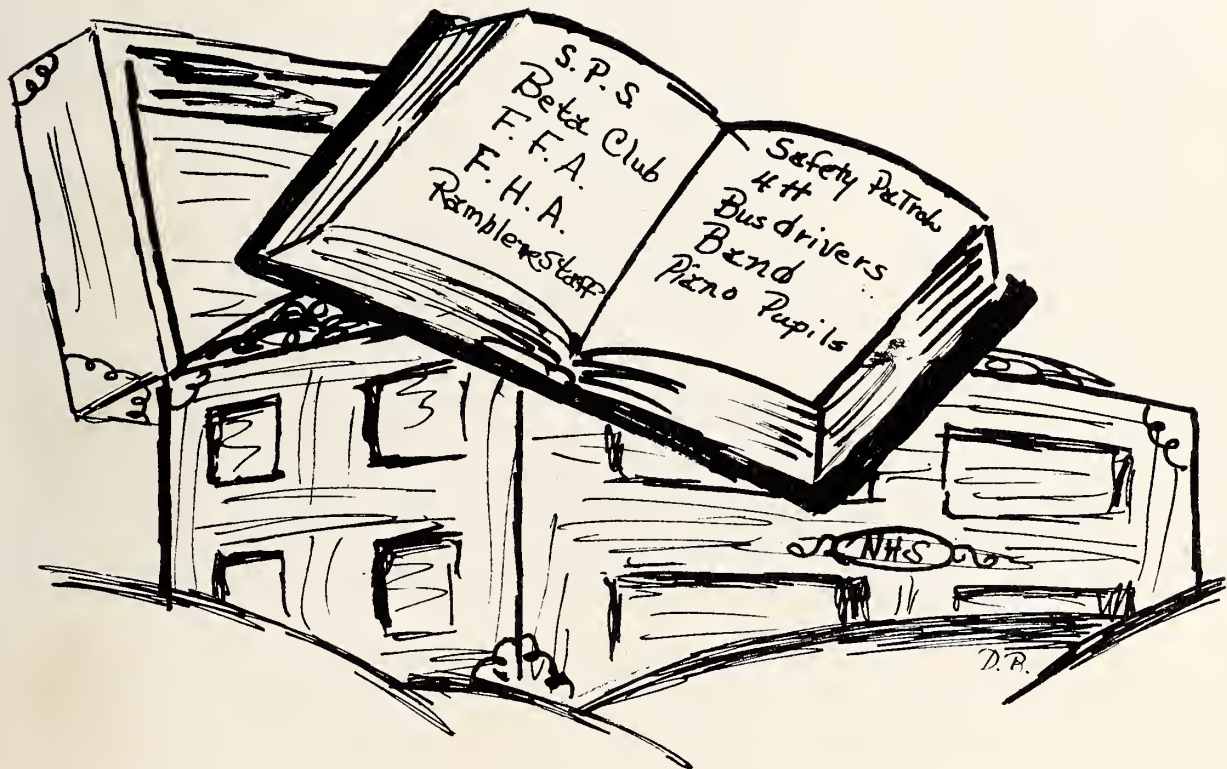 S. P. S.
Beta Club
F. F. A.
F. H. A.
Rambler Staff
Safety Patrol
4 H
Bus drivers
Band
Piano Pupils
NHS
D. R.